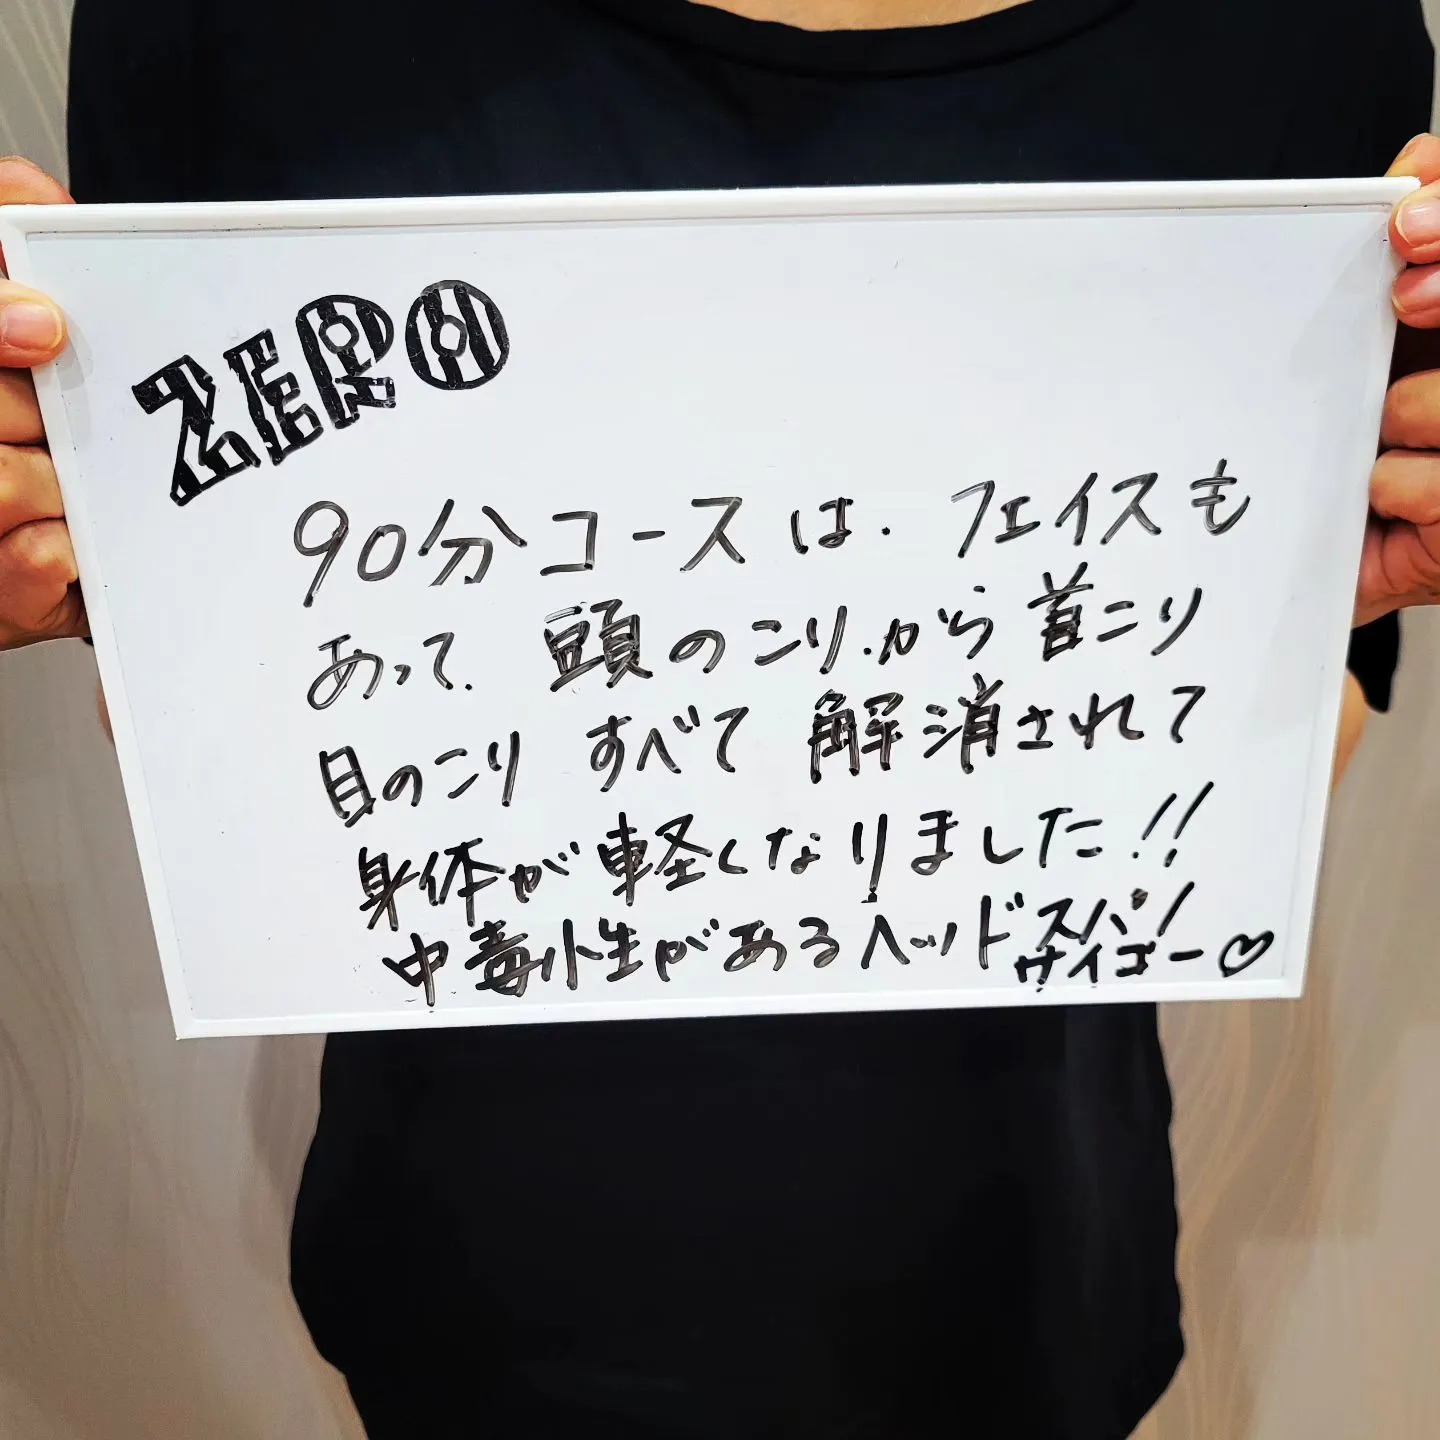 ZERO
90分コースは、フェイスも
あって、頭のこり、から首こり
目のこり すべて 解消されて
身体が軽くなりました!!
中毒性があるヘッドスパ!
サイゴー♡